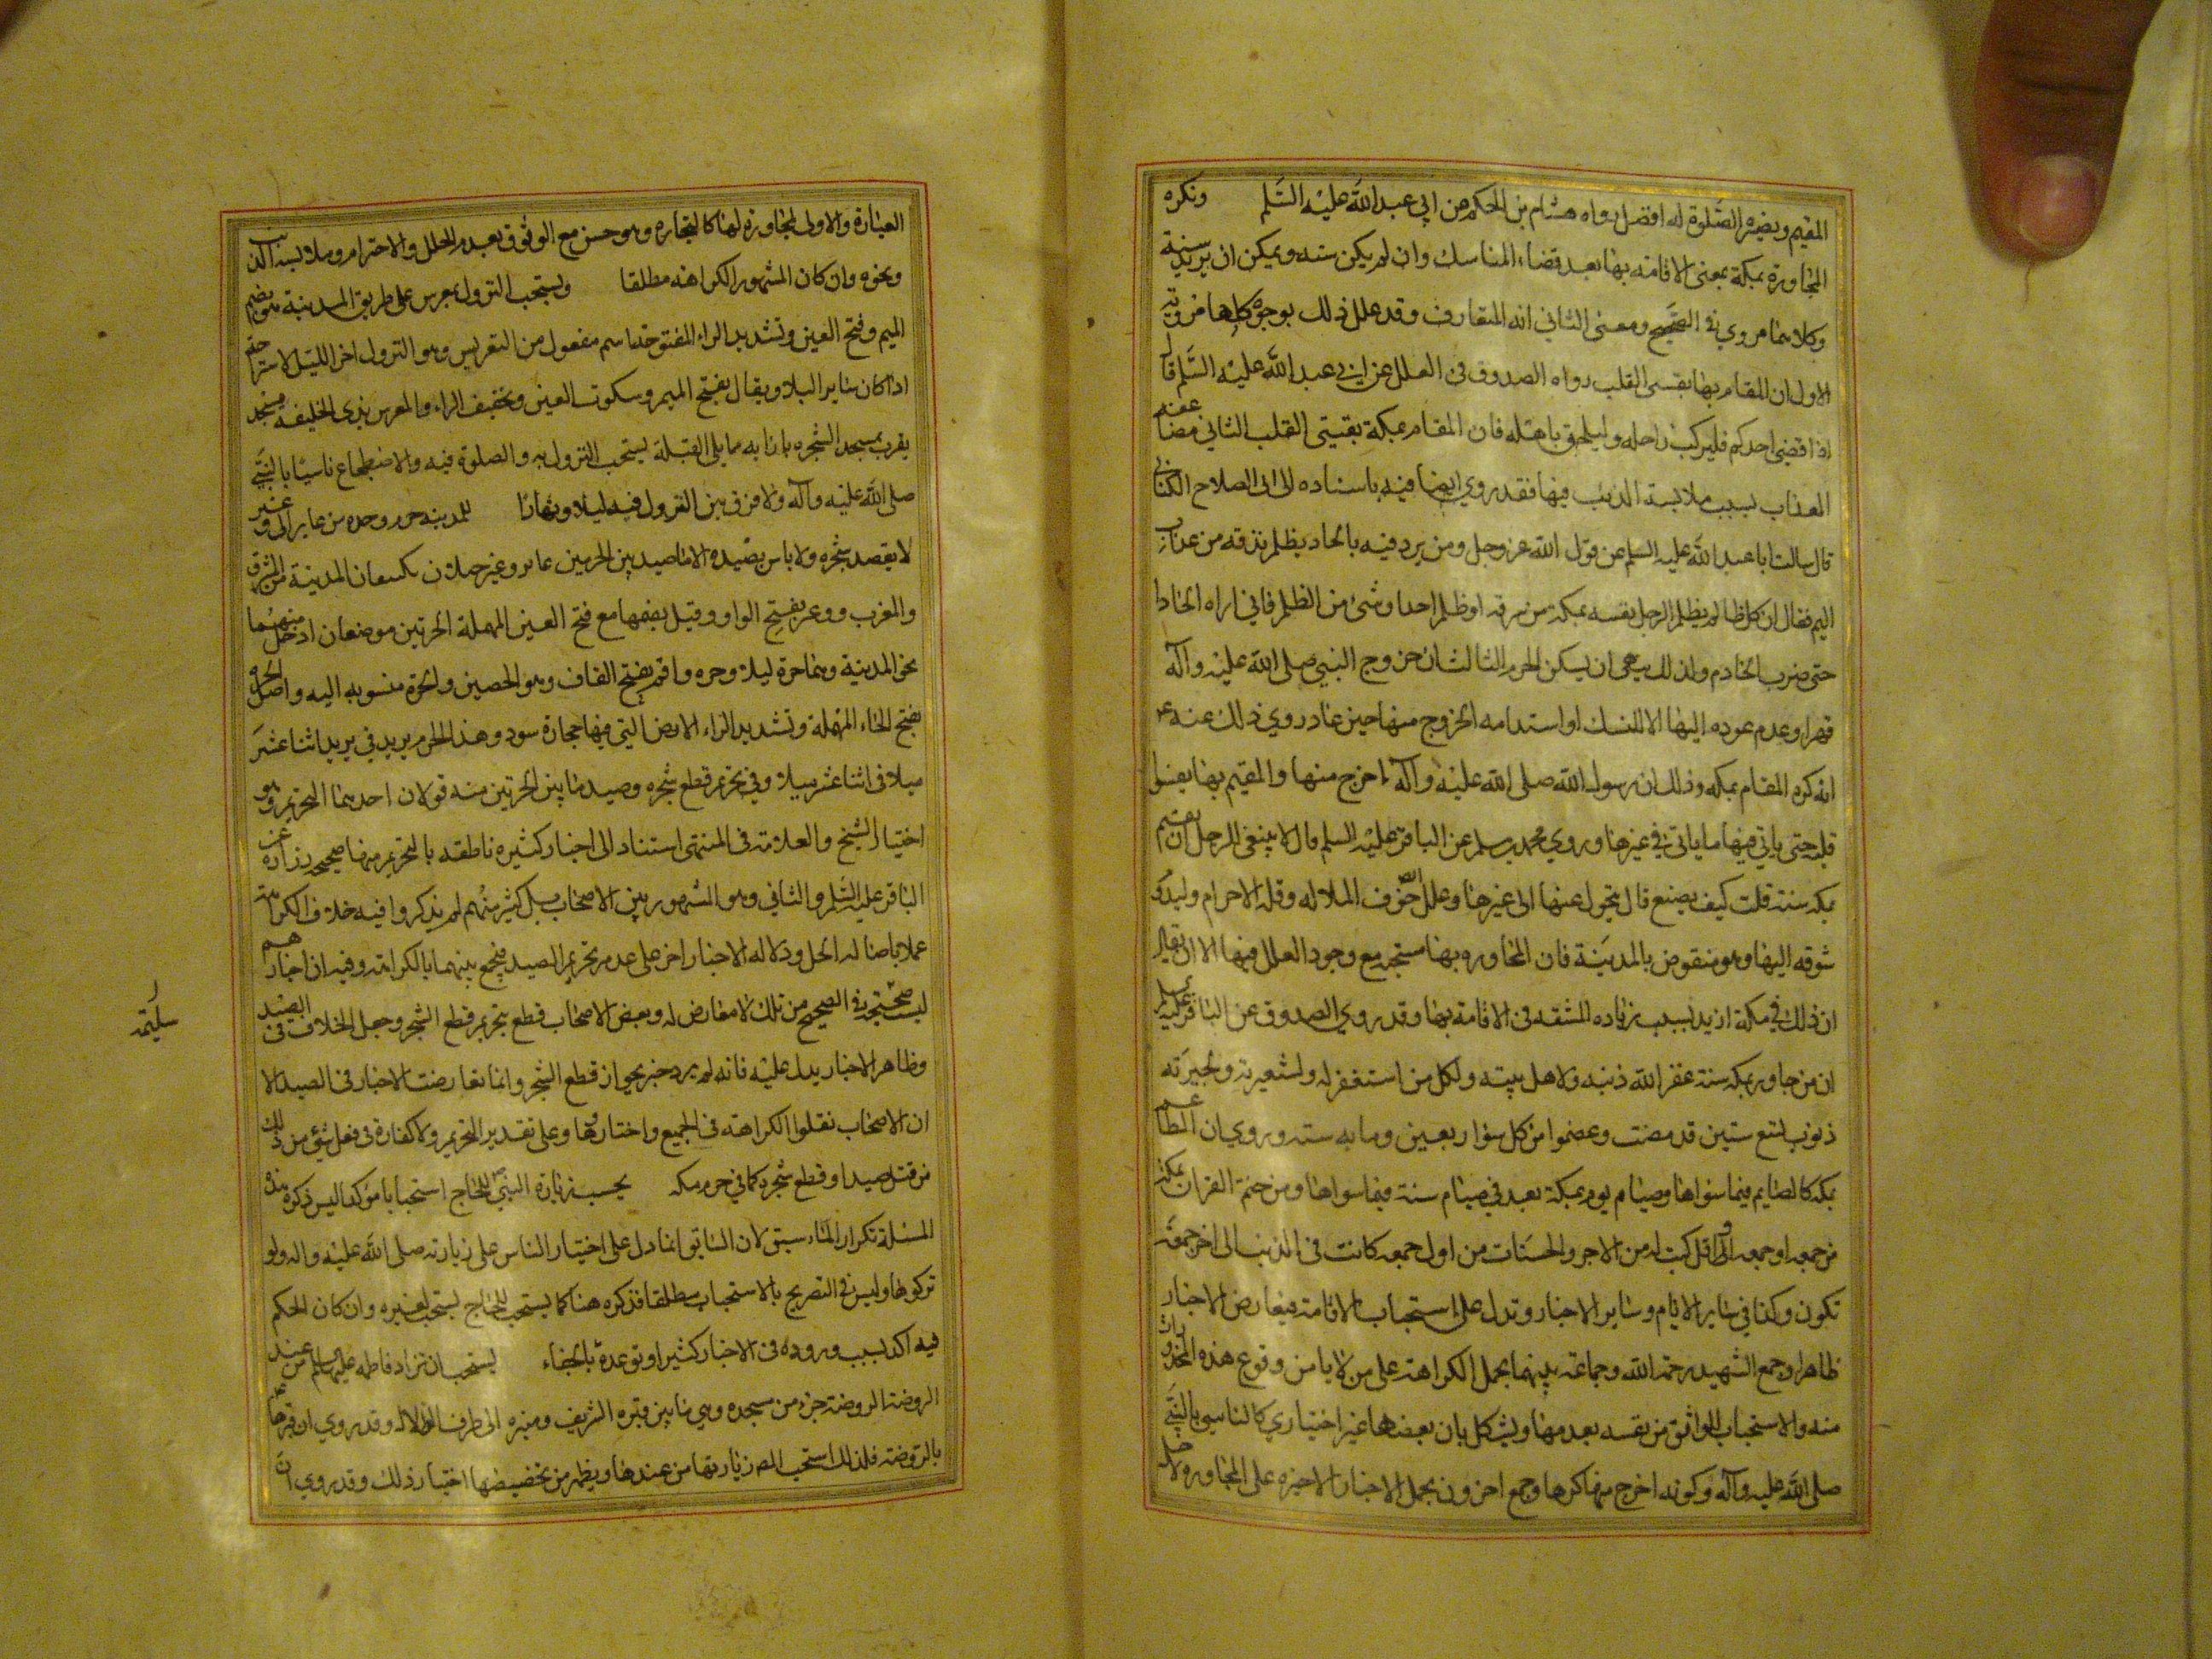 المقيم ويصير الصلوة له افضل رواه هشام بن الحكم عن ابي عبد الله عليه السلم ونكره
المجاورة بمكة بمعنى الاقامة بها بعد قضاء المناسك وان لم يكن سنه ويمكن ان يريد سنة
وكلاهما مروي في الصحيح ومعنى الثاني انه المتعارف وقد علل ذلك بوجوه كلها مروية
الاول ان المقام بها يقسى القلب رواه الصدوق في العلل عن ابي عبد الله عليه السلم قال
اذا قضى احدكم فليركب راحله وليلحق باهله فان المقام بمكة يقسي القلب الثاني مضاعفة
العذاب بسبب ملابسة الذنب فيها فقد روي ايضا فيه باسناده الى ابي الصلاح الكناني
قال سالت ابا عبد الله عليه السلم عن قول الله عز وجل ومن يرد فيه بالحاد بظلم نذقه من عذاب
اليم فقال ان كل ظالم يظلم الرجل نفسه بمكة من سرقه او ظلم احد او شئ من الظلم فاني اراه الحادا
حتى ضرب الخادم ولذلك ان يسكن الحرم الثالث خروج النبي صلى الله عليه وآله
قهرا وعدم عوده اليها الا للنسك او استدامه الخروج منها حين عاد روي ذلك عنه
انه كره المقام بمكه وذلك ان رسول الله صلى الله عليه وآله اخرج منها والمقيم بها يقسوا
قلبه حتى ياتي فيها ما ياتي في غيرها وروي محمد بن مسلم عن الباقر عليه السلم قال لا ينبغي الرجل ان يقيم
بمكه سنة قلت كيف يصنع قال يتحول عنها الى غيرها وعلل ايضا بخوف الملالة وقلة الاحرام وليدوم
شوقه اليها وهو منقوض بالمدينة فان المجاوره بها مستحبه مع وجود العلل فيها الا ان يقال
ان ذلك في مكة ازيد بسبب زياده المشقه في الاقامة بها وقد روي الصدوق عن الباقر عليه السلم
ان من جاور بمكه سنة غفر الله ذنبه ولاهل بيته ولكل من استغفر له ولعشيرته ولجيرته
ذنوب تسع سنين قد مضت وعصموا من كل سوء اربعين ومايه سنة وروي ان الطاعم
بمكه كالصايم فيما سواها وصيام يوم بمكة يعدل صيام سنة فيما سواها ومن ختم القران بمكة
من جمعه او جمعه او اقل كتب له من الاجر والحسنات من اول جمعه كانت في الدنيا الى اخر جمعة
تكون وكذا في ساير الايام وساير الاخبار وتدل على استحباب الاقامة فيعارض الاخبار
ظاهرا وجمع الشهيد رحمة الله وجماعة بينهما بحمل الكراهة على من لا يامن وقوع هذه المحذورات
منه والاستحباب للواثق من نفسه بعدمها ويشكل بان بعضها غير اختياري كالناسي بالنبي
صلى الله عليه وآله وكونه اخرج منها كرها وجمع اخرون بحمل الاخبار الاخيره على المجاوره لاجل
العبادة والاولى المجاورة لها كالتجاره وهو حسن مع الوثوق بعدم الخلل والاحترام وملابسة الذنب
ونحوه وان كان المشهور الكراهة مطلقا ويستحب النزول بمعرس على طريق المدينة بضم
الميم وفتح العين وتشديد الراء المفتوحة اسم مفعول من التعريس وهو النزول اخر الليل لاستراحة
اذا كان ساير البلا ويقال بفتح الميم وسكون العين وتخفيف الراء والمعرس بذي الحليفة مسجد
يقرب بمسجد الشجره بازايه مما يلي القبلة يستحب النزول به والصلوة فيه والاضطجاع تاسيا بالنبي
صلى الله عليه وآله ولا فرق بين النزول فيه ليلا ونهارا للمدينة حرم وحده من عاير الى وعير
لا يعضد شجره ولا باس بصيده الا ما صيد بين الحرمين عاير وعير جبلان يكتنفان المدينة من المشرق
والمغرب ووعر بفتح الواو وقيل بضمها مع فتح العين المهملة الحرتين موضعان ادخل منهما
نحو المدينة وهما حرة ليلا وحره واقم بفتح القاف وهو الحصن والحرة منسوبه اليه واصل الحره
بفتح الحاء المهملة وتشديد الراء الارض التي فيها حجارة سود وهذا الحرم بريد في بريد اثنا عشر
ميلا في اثنا عشر ميلا وفي تحريم قطع شجره وصيد ما بين الحرتين منه قولان احدهما التحريم وهو
اختيار الشيخ والعلامة في المنتهى استنادا الى اخبار كثيره ناطقه بالتحريم منها صحيحه زراره عن
الباقر عليه السلم والثاني وهو المشهور بين الاصحاب بل كثير منهم لم يذكروا فيه خلاف الكراهة
عملا باصالة الحل ودلاله الاخبار اخر على عدم تحريم الصيد فيجمع بينهما بالكراهة وفيه ان اخبارهم
ليست صحيحة في الصحيح من تلك لا معارض له وبعض الاصحاب قطع بتحريم قطع الشجر وجعل الخلاف في الصيد
وظاهر الاخبار يدل عليه فانه لم يرد خبر بجواز قطع الشجر وانما تعارضت الاخبار في الصيد الا
ان الاصحاب نقلوا الكراهة في الجميع واختاروها وعلى تقدير التحريم ولا كفارة في فعل شئ من ذلك
من قتل صيد او قطع شجره كما في حرم مكه يحسب زيارة النبي للحاج استحبابا موكدا ليس ذكره هذه
المسئلة تكرار لما سبق لان السابق انما دل على اختيار الناس على زيارته صلى الله عليه واله ولو
تركوها وليس في التصريح بالاستحباب مطلقا فذكره هنا كما يستحب للحاج يستحب لغيره وان كان الحكم
فيه اكد بسبب وروده في الاخبار كثيرا وتوعده بالجفاء يستحب ان تزار فاطمه عليها السلم من عند
الروضة الروضة جزء من مسجده وهي ما بين قبره الشريف ومنبره الى طرف الظلال وقد روي ان قبرها
بالروضة فلذلك استحب المص زيارتها من عندها ويظهر من تخصيصها اختيار ذلك وقد روي ان